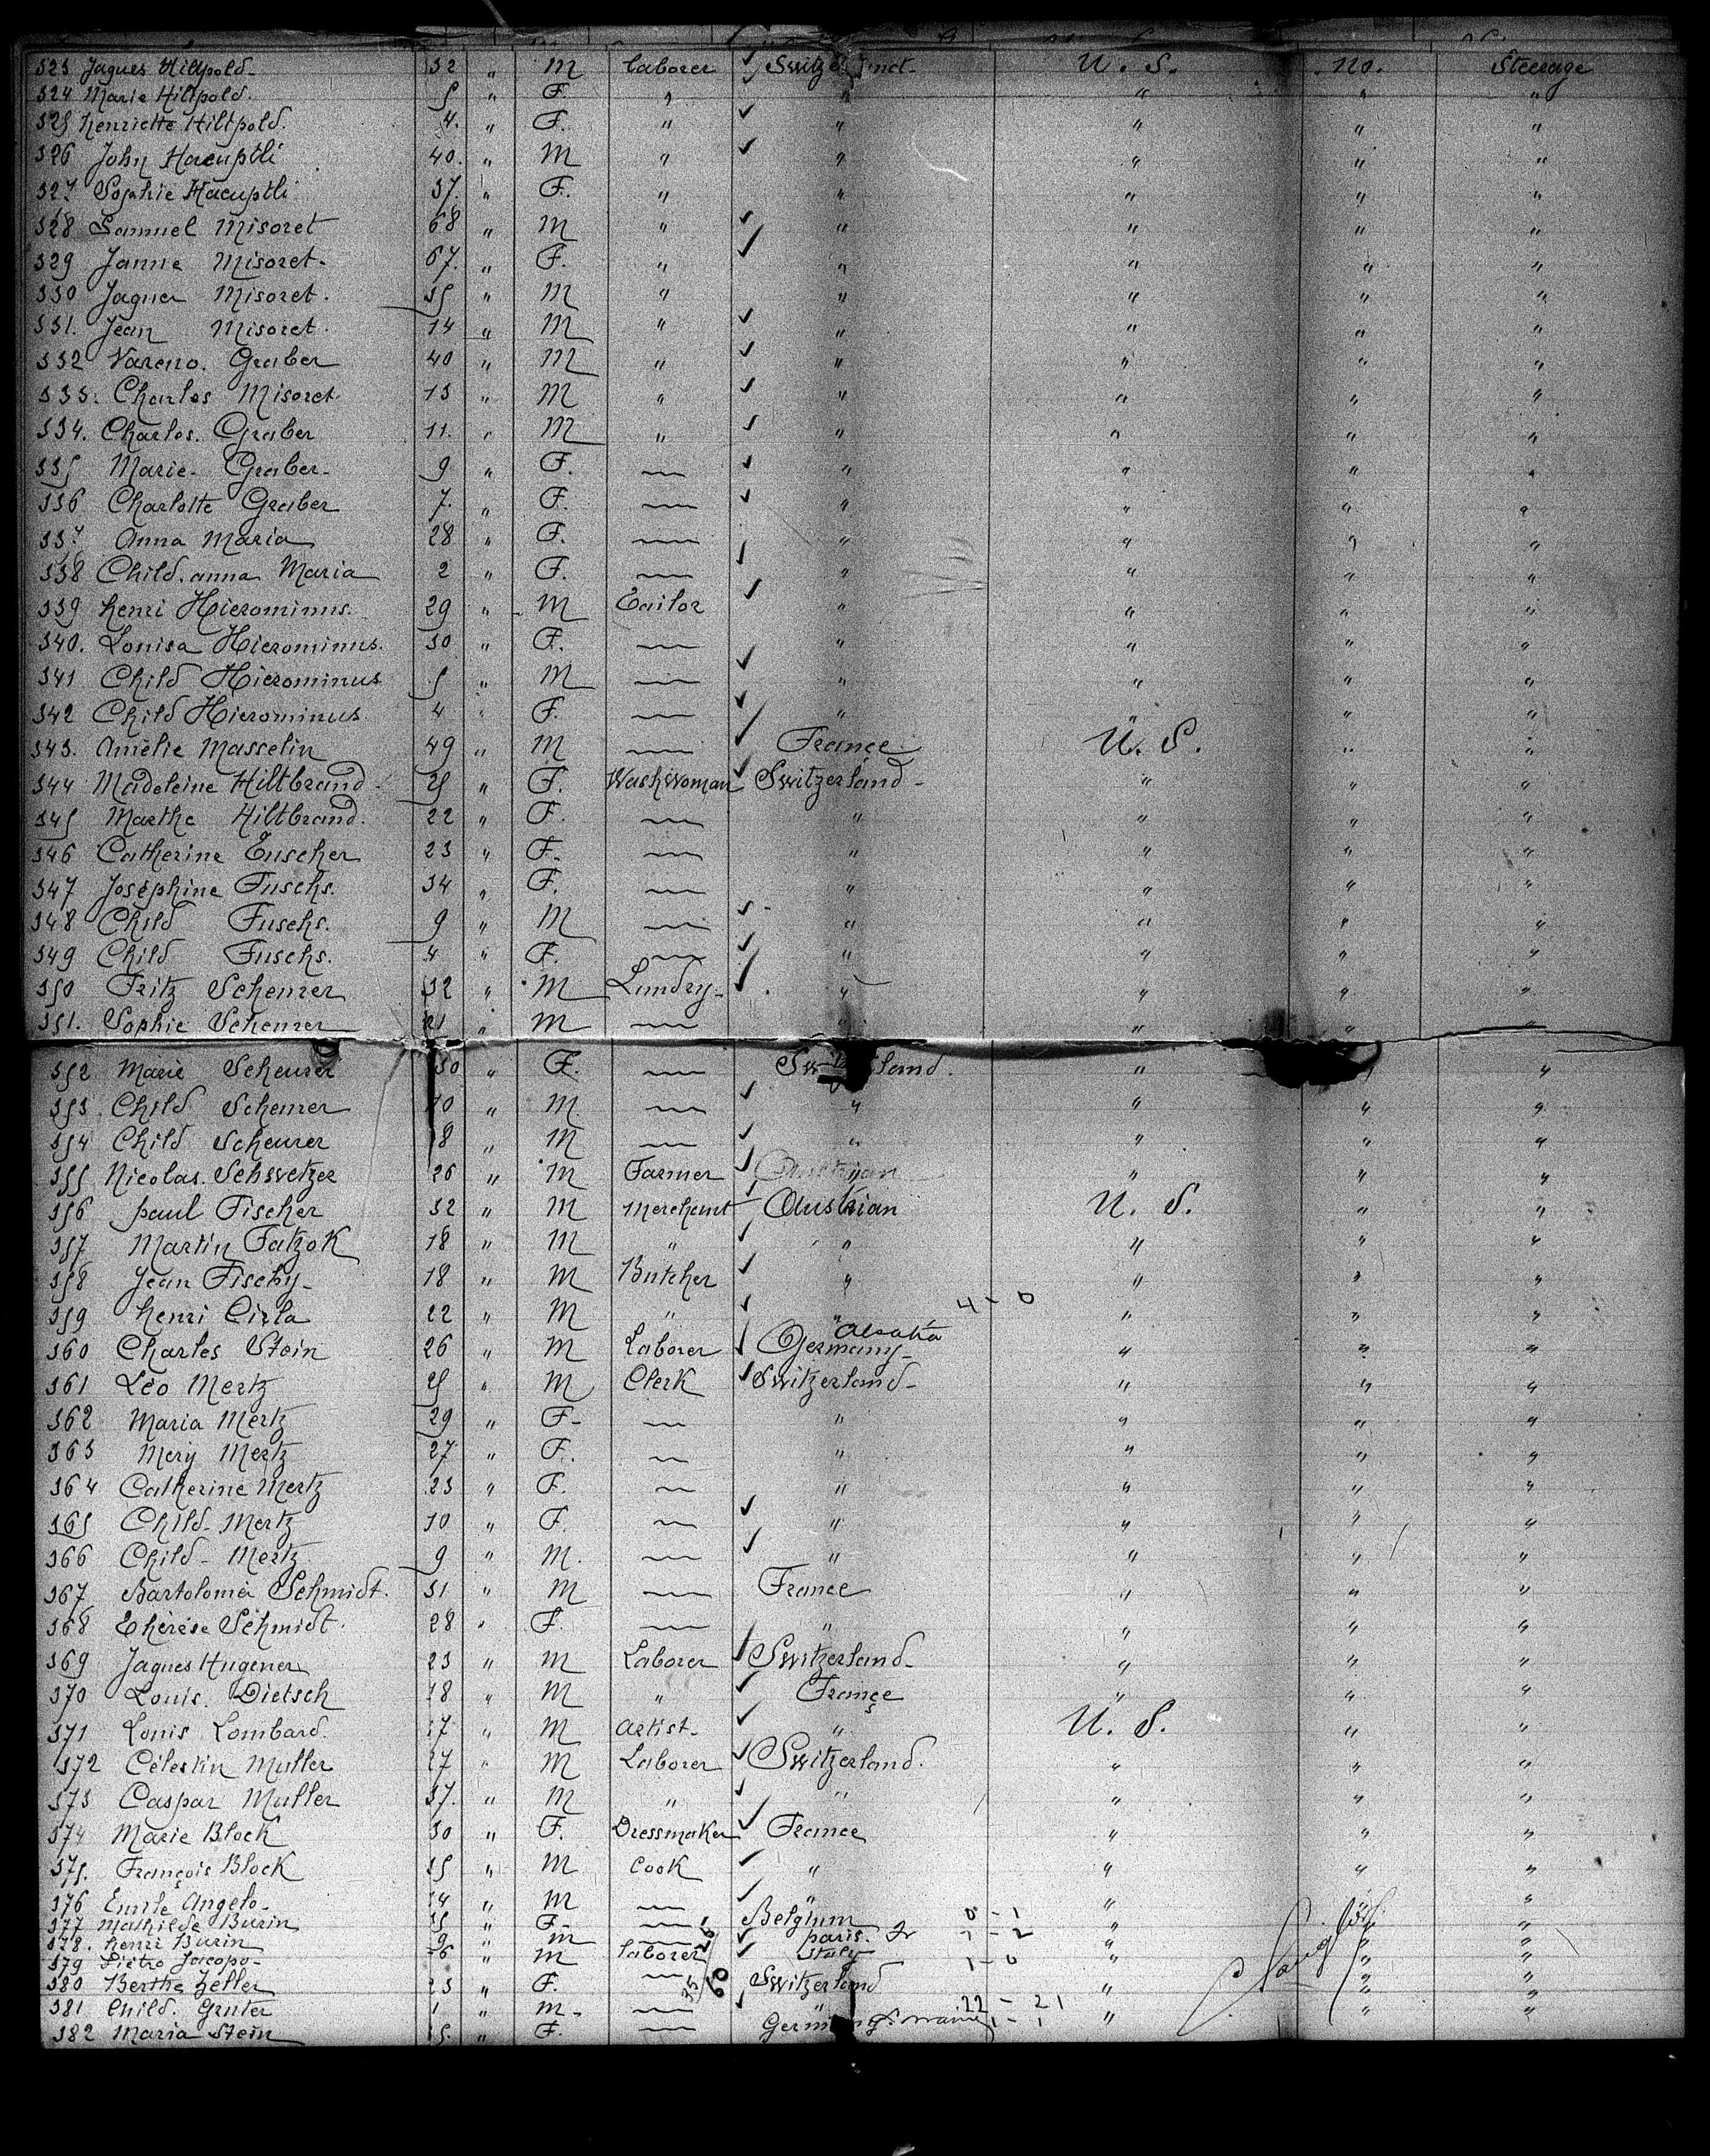 323 Jaques Hiltpold. 32 " M laborer Switz U. S. No. Steerage
324 Marie Hiltpold. 5 " F. " " " " "
325 henriette Hiltpold. 4. " F. " " " " "
326 John Haeuptli 40. " M " " " " "
327 Sophie Haeuptli 37. " F. " " " " "
328 Samuel Misoret 68 " M " " " " "
329 Janne Misoret. 67. " F. " " " " "
330 Jaques Misoret. 35 " M " " " " "
331. Jean Misoret. 14 " M " " " " "
332 Vareno. Graber 40 " M " " " " "
333. Charles Misoret 13 " M " " " " "
334. Charles. Graber 11. " M " " " " "
335 Marie Graber 9 " F. — " " " "
336 Charlotte Graber 7. " F. — " " " "
337 Anna Maria 28 " F. — " " " "
338 Child. anna Maria 2 " F. — " " " "
339 henri Hierominus. 29 " M Tailor " " " "
340. Louisa Hierominus. 30 " F. — " " " "
341 Child Hierominus 5 " M — " " " "
342 Child Hierominus 4 " F. — " " " "
343. Amelie Masselin 49 " M — France U. S. " "
344 Madeleine Hiltbrand 25 " F. Washwoman Switzerland " " "
345 Marthe Hiltbrand. 22 " F. — " " " "
346 Catherine Tuscher 23 " F. — " " " "
347 Josephine Fuschs. 34 " F. — " " " "
348 Child Fuschs. 9 " M — " " " "
349 Child Fuschs. 4 " F. — " " " "
350 Fritz Scheurer 32 " M Lundry " " " "
351. Sophie Scheurer 21 " M — " " " "
352 Marie Scheurer 30 " F. — Switzerland. " " "
353. Child Scheurer 10 " M. — " " " "
354 Child Scheurer 8 " M — " " " "
355 Nicolas. Schwetzer 26 " M Farmer " " " "
356 paul Fischer 32 " M Merchant Austrian U. S. " "
357 Martin Fatzok 18 " M " " " " "
358 Jean Fischy 18 " M Butcher " " " "
359 henri Cirla 22 " M " " 4 - 0 " " "
360 Charles Stein 26 " M Laborer Germany Alsatia " " "
361 Léo Mertz 25 " M Clerk Switzerland " " "
362 Maria Mertz 29 " F — " " " "
363 Mery Mertz 27 " F. — " " " "
364 Catherine Mertz 23 " F. — " " " "
365 Child Mertz 10 " F. — " " " "
366 Child Mertz 9 " M. — " " " "
367 Bartolomea Schmidt. 31 " M — France " " "
368 Thérèse Schmidt. 28 " F. — " " " "
369 Jaques Hugener 23 " M Laborer Switzerland " " "
370 Louis. Dietsch 18 " M " France " " "
371 Louis Lombard. 17 " M artist " U. S. " "
372 Celestin Muller 27 " M Laborer Switzerland. " " "
373 Caspar Muller 37. " M " " " " "
374 Marie Block 30 " F. Dressmaker France " " "
375. François Block 35 " M Cook " " " "
376 Emile Angelo 14 " M — " " " "
377 Mathilde Burin 35 " F. — Belgium 0 - 1 " " "
378. henri Burin 9 " M — paris. Fr 1 - 2 " " "
379 Pietro Jacopo 26 " M laborer Italy 1 - 0 " " "
380 Berthe Zeller 23 " F. — Switzerland " " "
381 Child. Gruter 1 " M — " 22 - 21 " " "
382 Maria Stein " F. — Germany 1 - 1 " " "